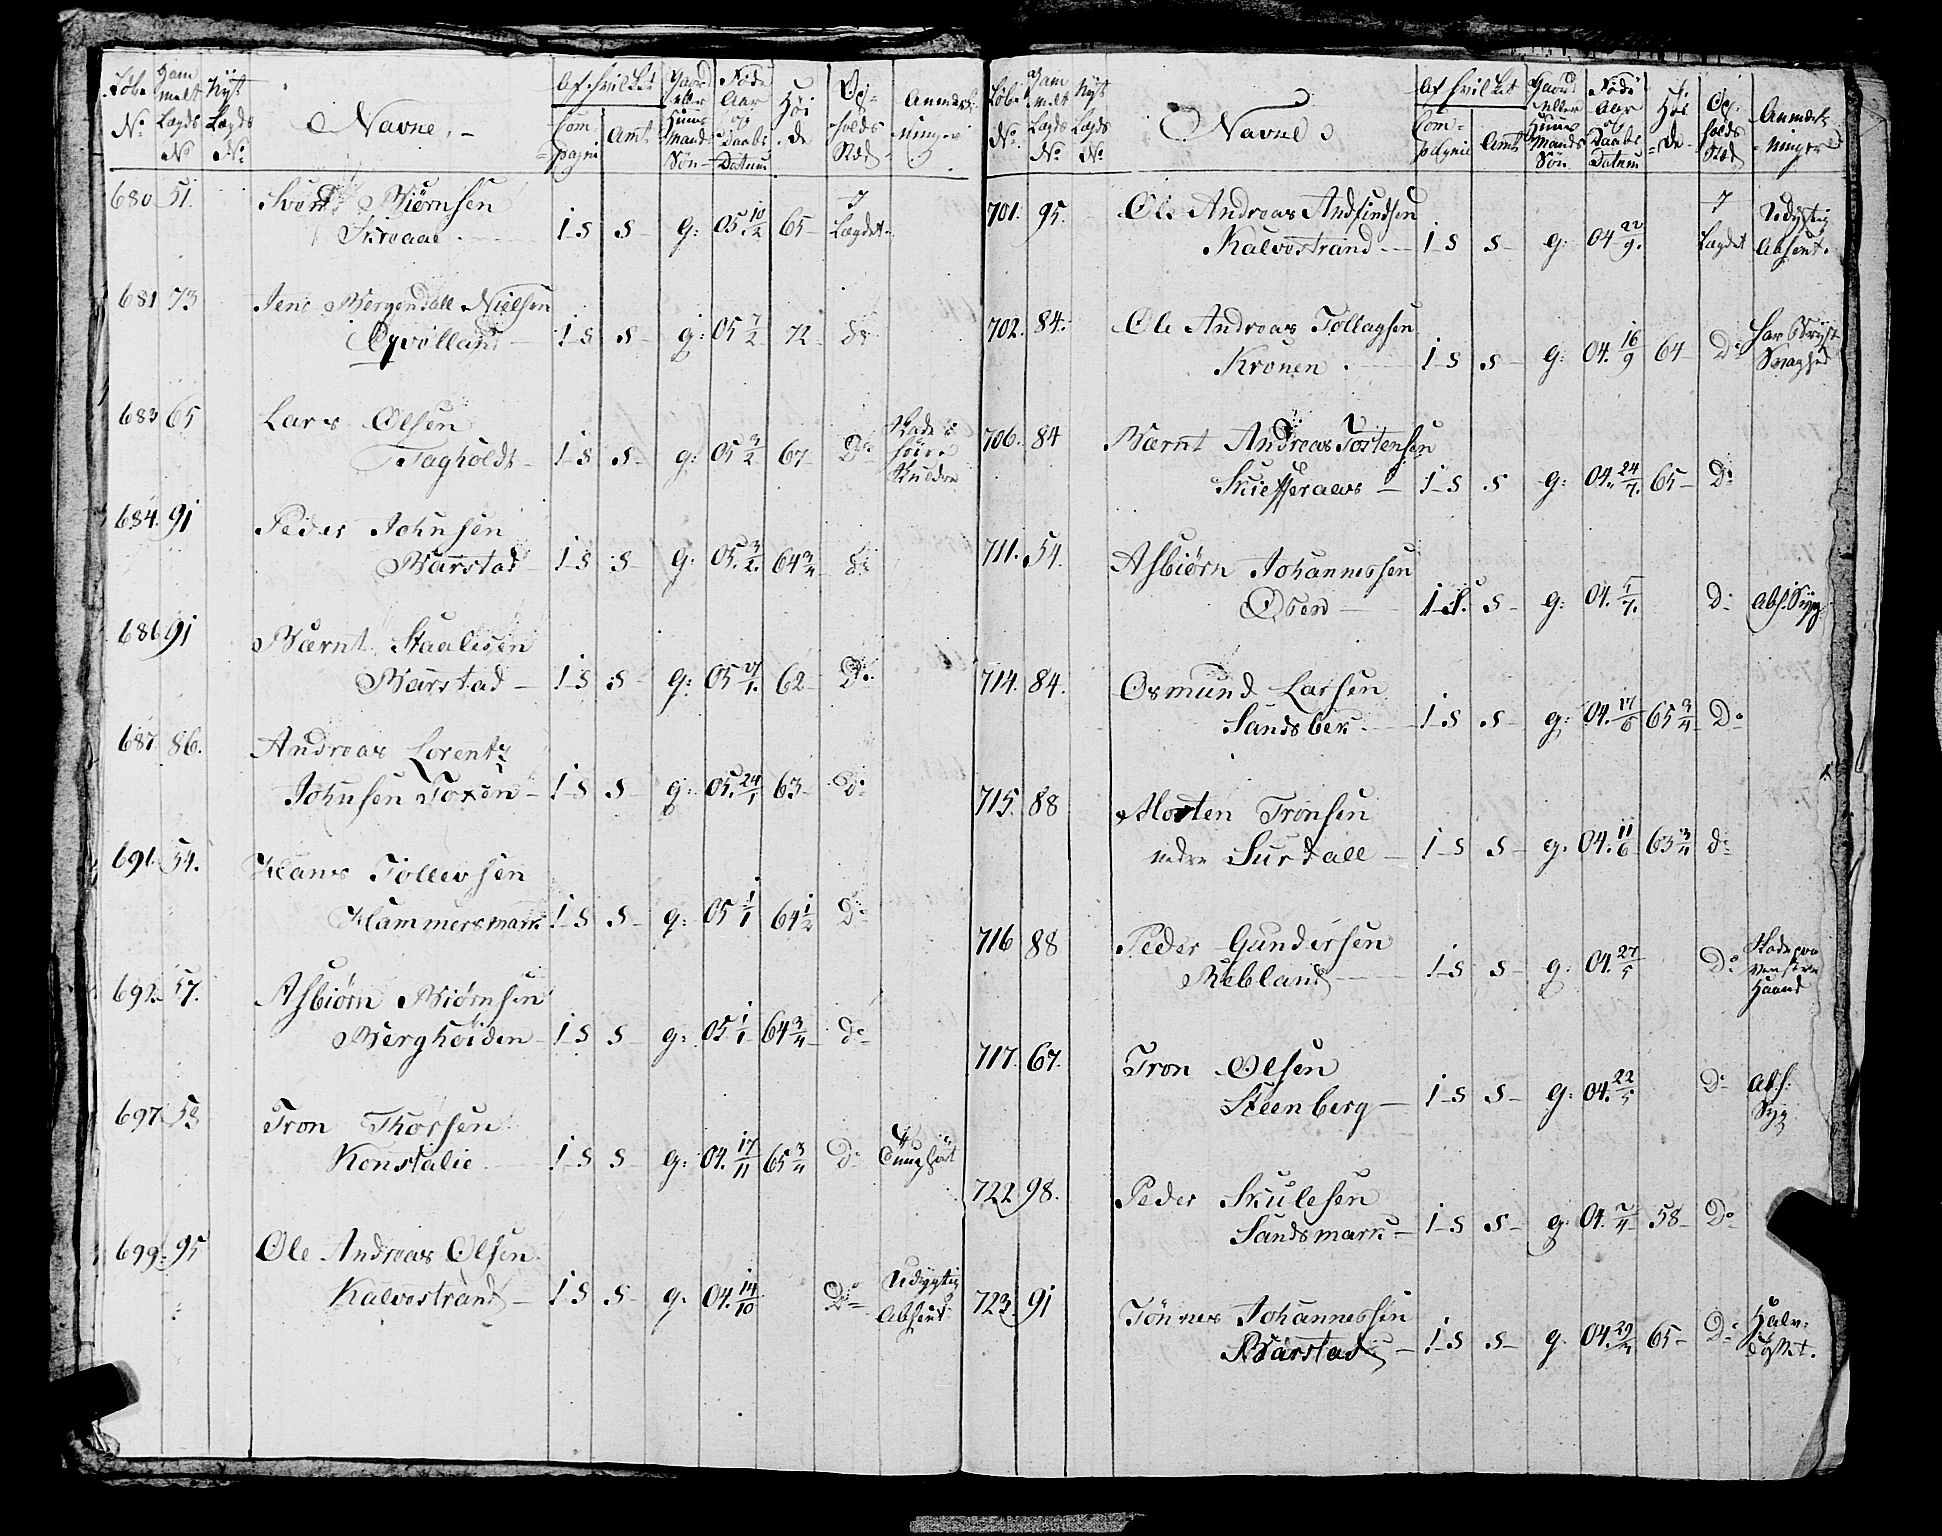 Løbe No. Gammelt Lægds No Nyt Lægds No. Navne. Af hvilket Compagni Amt. Gaard eller Huus Mands Søn Føde Aar og Daabs Datum Høide Opholds Sted Anmærkninger
680 51. Bjørnsen
1 S S g: 05 10/2 65 I Lægdet
681 73 Jens Bergendall Nielsen
1 S S g: 05 7/2 72 do
683 65 Lars Olsen
Fagholdt 1 S S g: 05 3/2 67 Do Skade i høire
684. 91 Peder Johnsen
Barstad 1 S S g: 05. 3/2. 64 3/4 do
686 91 Bærnt Staalesen
Barstad 1 S S g: 05 1. 62 Do
687 86. Andreas Lorentz
Johnsen Toxen 1 S S g: 05. 24/1 63 Do
691. 54. Hans Tollevsen
Hammersmark 1 S S g: 05 1/1 64 1/2 Do
692. 57. Asbiørn Biørnsen
Berghøiden 1 S S g: 05 1/1 64 3/4 do
697 53 Tron Thorsen
Konstalie 1 S S g: 04. 17/11 65 3/4 Do Tunghørt
699. 95 Ole Andreas Olsen
Kalvestrand 1 S S g. 04. 14/10 Do Udygtig
Absent
Løbe No. Gammelt Lægds No. Nyt Lægds No. Navne Af hvilket Compagnie Amt Gaard eller Huus Mands Søn Føde Aar og Daabs Datum Høide Opholds Sted Anmærkninger
701. 95. Ole Andreas Andfindsen
Kalvestrand 1 S S g: 04 22/9. I Lægdet Udygtig Absent.
702. 84. Ole Andreas Tollagsen
Kronen 1 S S g: 04. 16/9 64 Do har Bryst Svaghed
706. 84 Bærnt Andreas Tostensen
1 S S g: 04. 24/7. 65 Do
711. 54. Asbiørn Johannessen
Osen 1 S. S g: 04. 7. Do Abs. Syg
714. 84. Osmund Larsen
Sandsber. 1 S S g: 04. 17/6 65 3/4 Do
715. 88 Morten Tronsen
nedre Surdall 1 S S g. 04. 11/6 63 3/4 do
716 88 Peder Gundersen
Rebland 1 S S g: 04. 27/5 Do Skade paa venstre Haand
717. 67. Tron Olsen
Steenberg 1 S S g: 04. 22/5 Do Abs. Syg
722. 98. Peder Skulesen
Sandsmark 1 S S g: 04. 7/4 58 Do
723. 91 Tönnes Johannessen
Barstad 1 S S g. 04. 29 65 Do Halv-døstet.